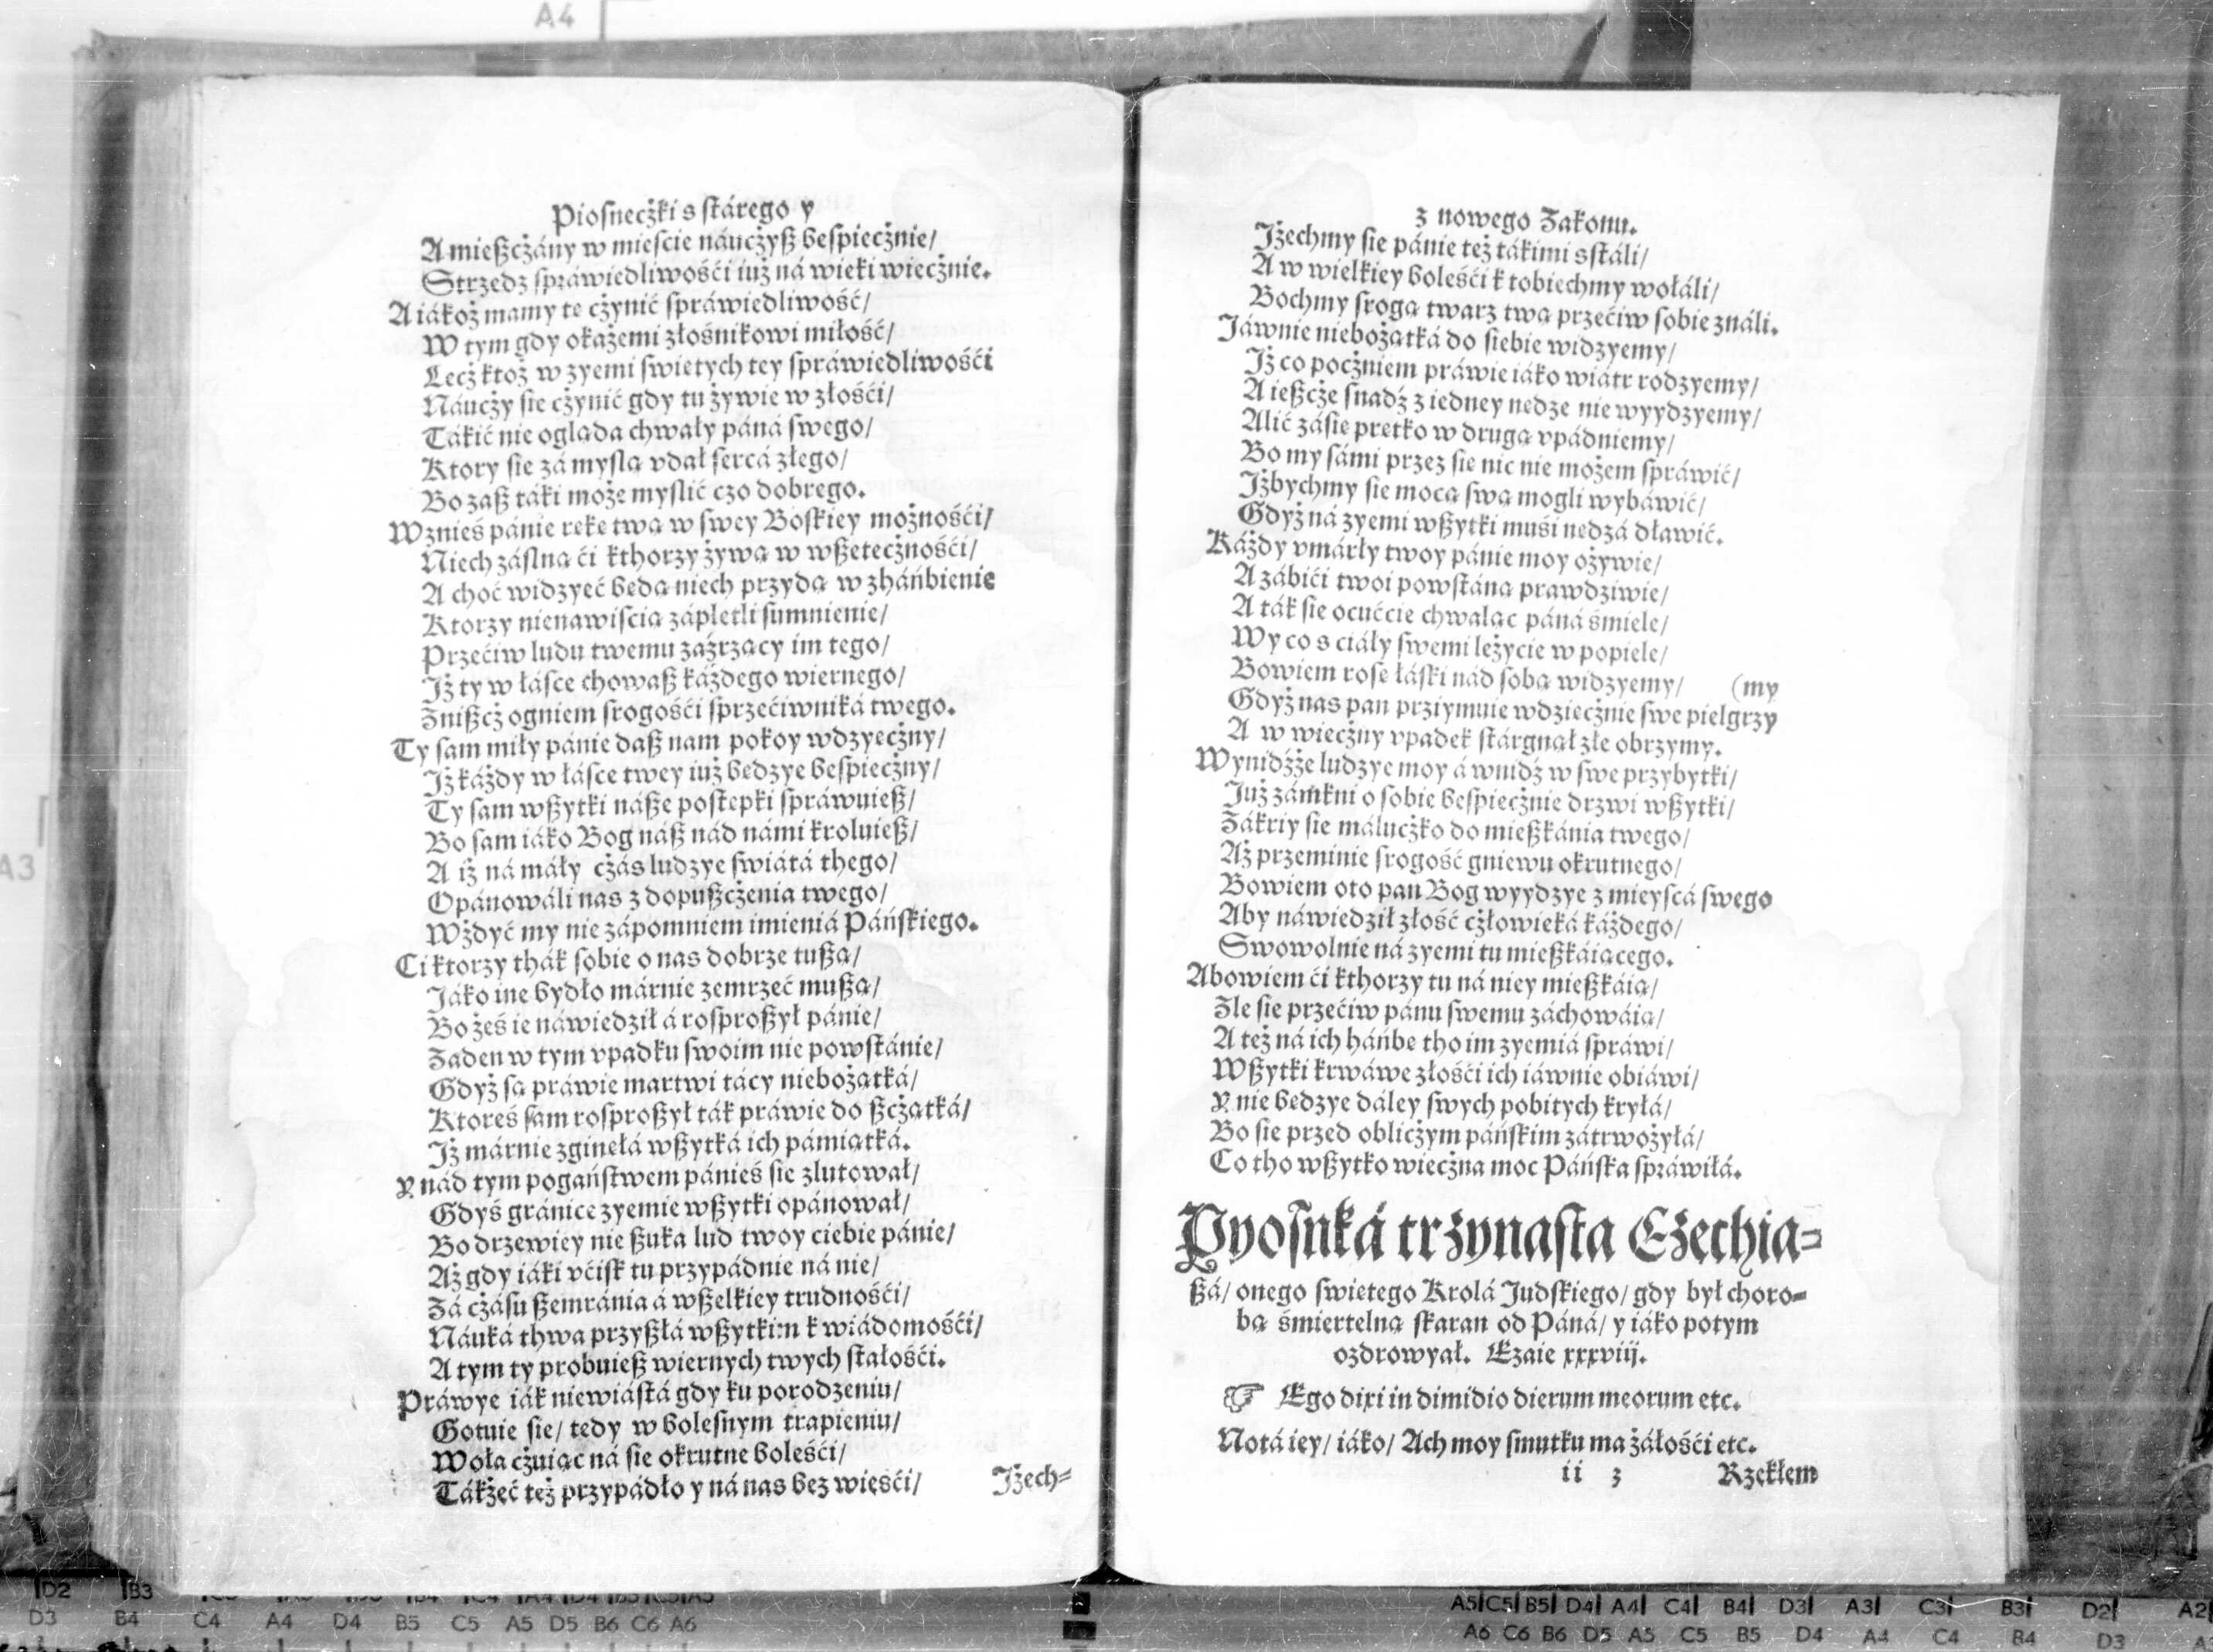 Piosnecżki s stárego y
A mießcżány w mieście náucżyß bespiecżnie/
Strzedz spráwiedliwośći iuż ná wieki wiecżnie.
A iákoż mamy te cżynić spráwiedliwość/
W tym gdy okażemi złośnikowi miłość/
Lecż ktoż w zyemi swietych tey spráwiedliwośći
Náucży sie cżynić gdy tu żywie w złośći/
Tákić nie oglada chwały páná swego/
Ktory sie zá mysla vdał sercá złego/
Bo zaß táki może myslić czo dobrego.
Wznieś pánie reke twa w swey Boskiey możnośći/
Niech zásłna ći kthorzy żywa w wßetecżnośći/
A choć widzyeć beda niech przyda w zháńbienie
Ktorzy nienawiscia zápletli sumnienie/
Przećiw ludu twemu zaźrzacy im tego/
Jż ty w łásce chowaß káżdego wiernego/
Znißcż ogniem srogośći sprzećiwniká twego.
Ty sam miły pánie daß nam pokoy wdzyecżny/
Jż káżdy w łásce twey iuż bedzye bespiecżny/
Ty sam wßytki náße postepki spráwuieß/
Bo sam iáko Bog náß nád námi kroluieß/
A iż ná máły cżás ludzye swiátá thego/
Opánowáli nas z dopußcżenia twego/
Wżdyć my nie zápomniem imieniá Páńskiego.
Ci ktorzy thák sobie o nas dobrze tußa/
Jáko ine bydło márnie zemrzeć mußa/
Bo żeś ie náwiedził á rosproßył pánie/
Zaden w tym vpadku swoim nie powstánie/
Gdyż sa práwie martwi tácy niebożatká/
Ktoreś sam rosproßył ták práwie do ßcżatká/
Jż márnie zginełá wßytká ich pámiatká.
Y nád tym pogáństwem pánieś sie zlutował/
Gdyś gránice zyemie wßytki opánował/
Bo drzewiey nie ßuka lud twoy ciebie pánie/
Aż gdy iáki vćisk tu przypádnie ná nie/
Zá cżásu ßemránia á wßelkiey trudnośći/
Náuká thwa przyßłá wßytkim k wiádomośći/
A tym ty probuieß wiernych twych stałośći.
Práwye iák niewiástá gdy ku porodzeniu/
Gotuie sie/ tedy w bolesnym trapieniu/
Woła cżuiac ná sie okrutne boleśći/
Tákżeć też przypádło y ná nas bez wieśći/
Jżech=
z nowego Zakonu.
Jżechmy sie pánie też tákimi sstáli/
A w wielkiey boleśći k tobiechmy wołáli/
Bochmy sroga twarz twa przećiw sobie ználi.
Jáwnie niebożatká do siebie widzyemy/
Jż co pocżniem práwie iáko wiátr rodzyemy/
A ießcże snadź z iedney nedze nie wyydzyemy/
Alić zásie pretko w druga vpádniemy/
Bo my sámi przez sie nic nie możem spráwić/
Jżbychmy sie moca swa mogli wybáwić/
Gdyż ná zyemi wßytki muśi nedzá dławić.
Káżdy vmárły twoy pánie moy ożywie/
A zábići twoi powstána prawdziwie/
A ták sie ocućcie chwalac páná śmiele/
Wy co s ciáły swemi leżycie w popiele/
Bowiem rose łáski nád soba widzyemy/ (my
Gdyż nas pan prziymuie wdziecżnie swe pielgrzy
A w wiecżny vpadek stárgnał złe obrzymy.
Wynidźże ludzye moy á wnidź w swe przybytki/
Już zámkni o sobie bespiecżnie drzwi wßytki/
Zákriy sie málucżko do mießkánia twego/
Aż przeminie srogość gniewu okrutnego/
Bowiem oto pan Bog wyydzye z mieyscá swego
Aby náwiedził złość cżłowieká káżdego/
Swowolnie ná zyemi tu mießkáiacego.
Abowiem ći kthorzy tu ná niey mießkáia/
Zle sie przećiw pánu swemu záchowáia/
A też ná ich háńbe tho im zyemiá spráwi/
Wßytki krwáwe złośći ich iáwnie obiáwi/
Y nie bedzye dáley swych pobitych kryłá/
Bo sie przed oblicżym páńskim zátrwożyłá/
Co tho wßytko wiecżna moc Páńska spráwiłá.
Pyosnká trzynasta Ezechia=
ßá/ onego swietego Krolá Judskiego/ gdy był choro=
ba śmiertelna skaran od Páná/ y iáko potym
ozdrowyał. Ezaie xxxviij.
☞ Ego dixi in dimidio dierum meorum etc.
Notá iey/ iáko/ Ach moy smutku ma żáłośći etc.
ii z Rzekłem